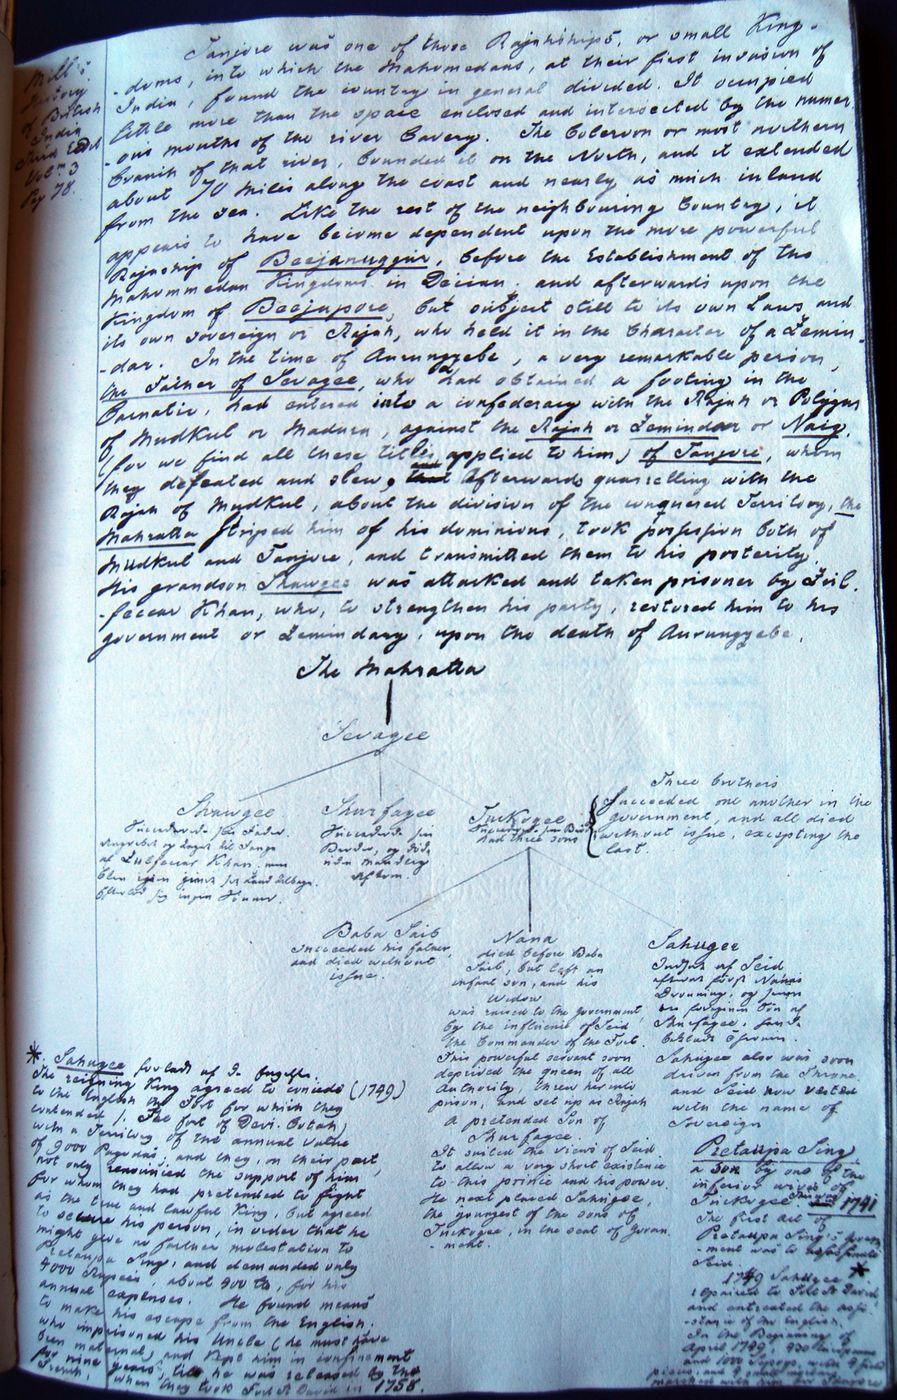 Mill's
History
of British
India
Third Ed.
Vol. 3
Pg 78.
Tanjore was one of those Rajahships, or small King-
-doms, into which the Mahomedans, at their first invasion of
India, found the country in general divided. It occupied
little more than the space enclosed and intersected by the numer
-ous mouths of the river Cavery. The Coleroon or most northern
branch of that river, bounded it on the North, and it extended
about 70 miles along the coast and nearly as much inland
from the sea. Like the rest of the neighbouring Country, it
appears to have become dependent upon the more powerful
Rajaship of Beejanuggur, before the Establishment of the
Mahommedan Kingdoms in Deccan; and afterwards upon the
Kingdom of Beejapore, but subject still to its own Laws and
its own sovereign or Rajah, who held it in the Character of a Zemin-
-dar. In the time of Aurungzebe, a very remarkable person,
the Father of Sevagee, who had obtained a footing in the
Carnatic, had entered into a confederacy with the Rajah or Polygar
of Mudkul or Madura, against the Rajah or Zemindar or Naig,
(for we find all these titles applied to him) of Tanjore, whom
they defeated and slew, and Afterwards quarelling with the
Rajah of Mudkul, about the division of the conquered Territory, the
Mahratta striped him of his dominions, took possession both of
Mudkul and Tanjore, and transmitted them to his posterity.
His grandson Shawgee was attacked and taken prisoner by Zul-
-feccar Khan, who, to strengthen his party, restored him to his
government or Zemindary, upon the death of Aurungzebe.
The Mahratta
Sevagee
Shawgee
Shurfagee
Tuckogee
had three sons
Three brothers
Succeeded one another in the
government, and all died
without issue, excepting the
last.
Baba Saib
Succeeded his father,
and died without
issue.
Nana
died before Baba
Saib, but left an
infant son, and his
Widow
was raised to the government,
by the influence of Seid
the Commander of the Fort.
This powerful servant soon
deprived the queen of all
Authority, threw her into
prison, and set up as Rajah
a pretended Son of
Shurfagee.
It suited the views of Seid
to allow a very short existence
to this prince and his power.
He next placed Sahugee,
the youngest of the sons of
Tuckogee, in the seat of Govern
-ment.
Sahugee
Indsat af Seid
Sahugee also was soon
driven from the Throne
and Seid now vested
with the name of
Sovereign
Pretaupa Sing
a son by one of the
inferior wives of
Tuckogee. This was 1741
The first act of
Pretaupa Sing's Govern
-ment was to assassinate
Seid.
1749 Sahugee *
repaired to Fort St David,
and entreated the assi
-stance of the English.
In the Beginning of
April 1749, 430 Europeans
and 1000 Sepoys, with 4 field
pieces, and 4 small mortars
marched with him for Tanjore
* Sahugee forladt af de Engelske.
The reigning King agreed to concede (1749)
to the English the Fort for which they
contended /: The fort of Devi-Cotah/
with a Territory of the annual value
of 9000 Pagodas; and they, on their part,
not only renounced the support of him
for whom they had pretended to fight
as the true and lawful King, but agreed
to secure his person, in order that he
might give no farther molestation to
Pretaupa Sing, and demanded only
4000 Rupees, about 400 £, for his
annual expenses. He found means
to make his escape from the English.
who imprisoned his Uncle (he must have
been maternal) and kept him in confinement
for nine years, till he was released by the
French, when they took Fort St David in 1758.